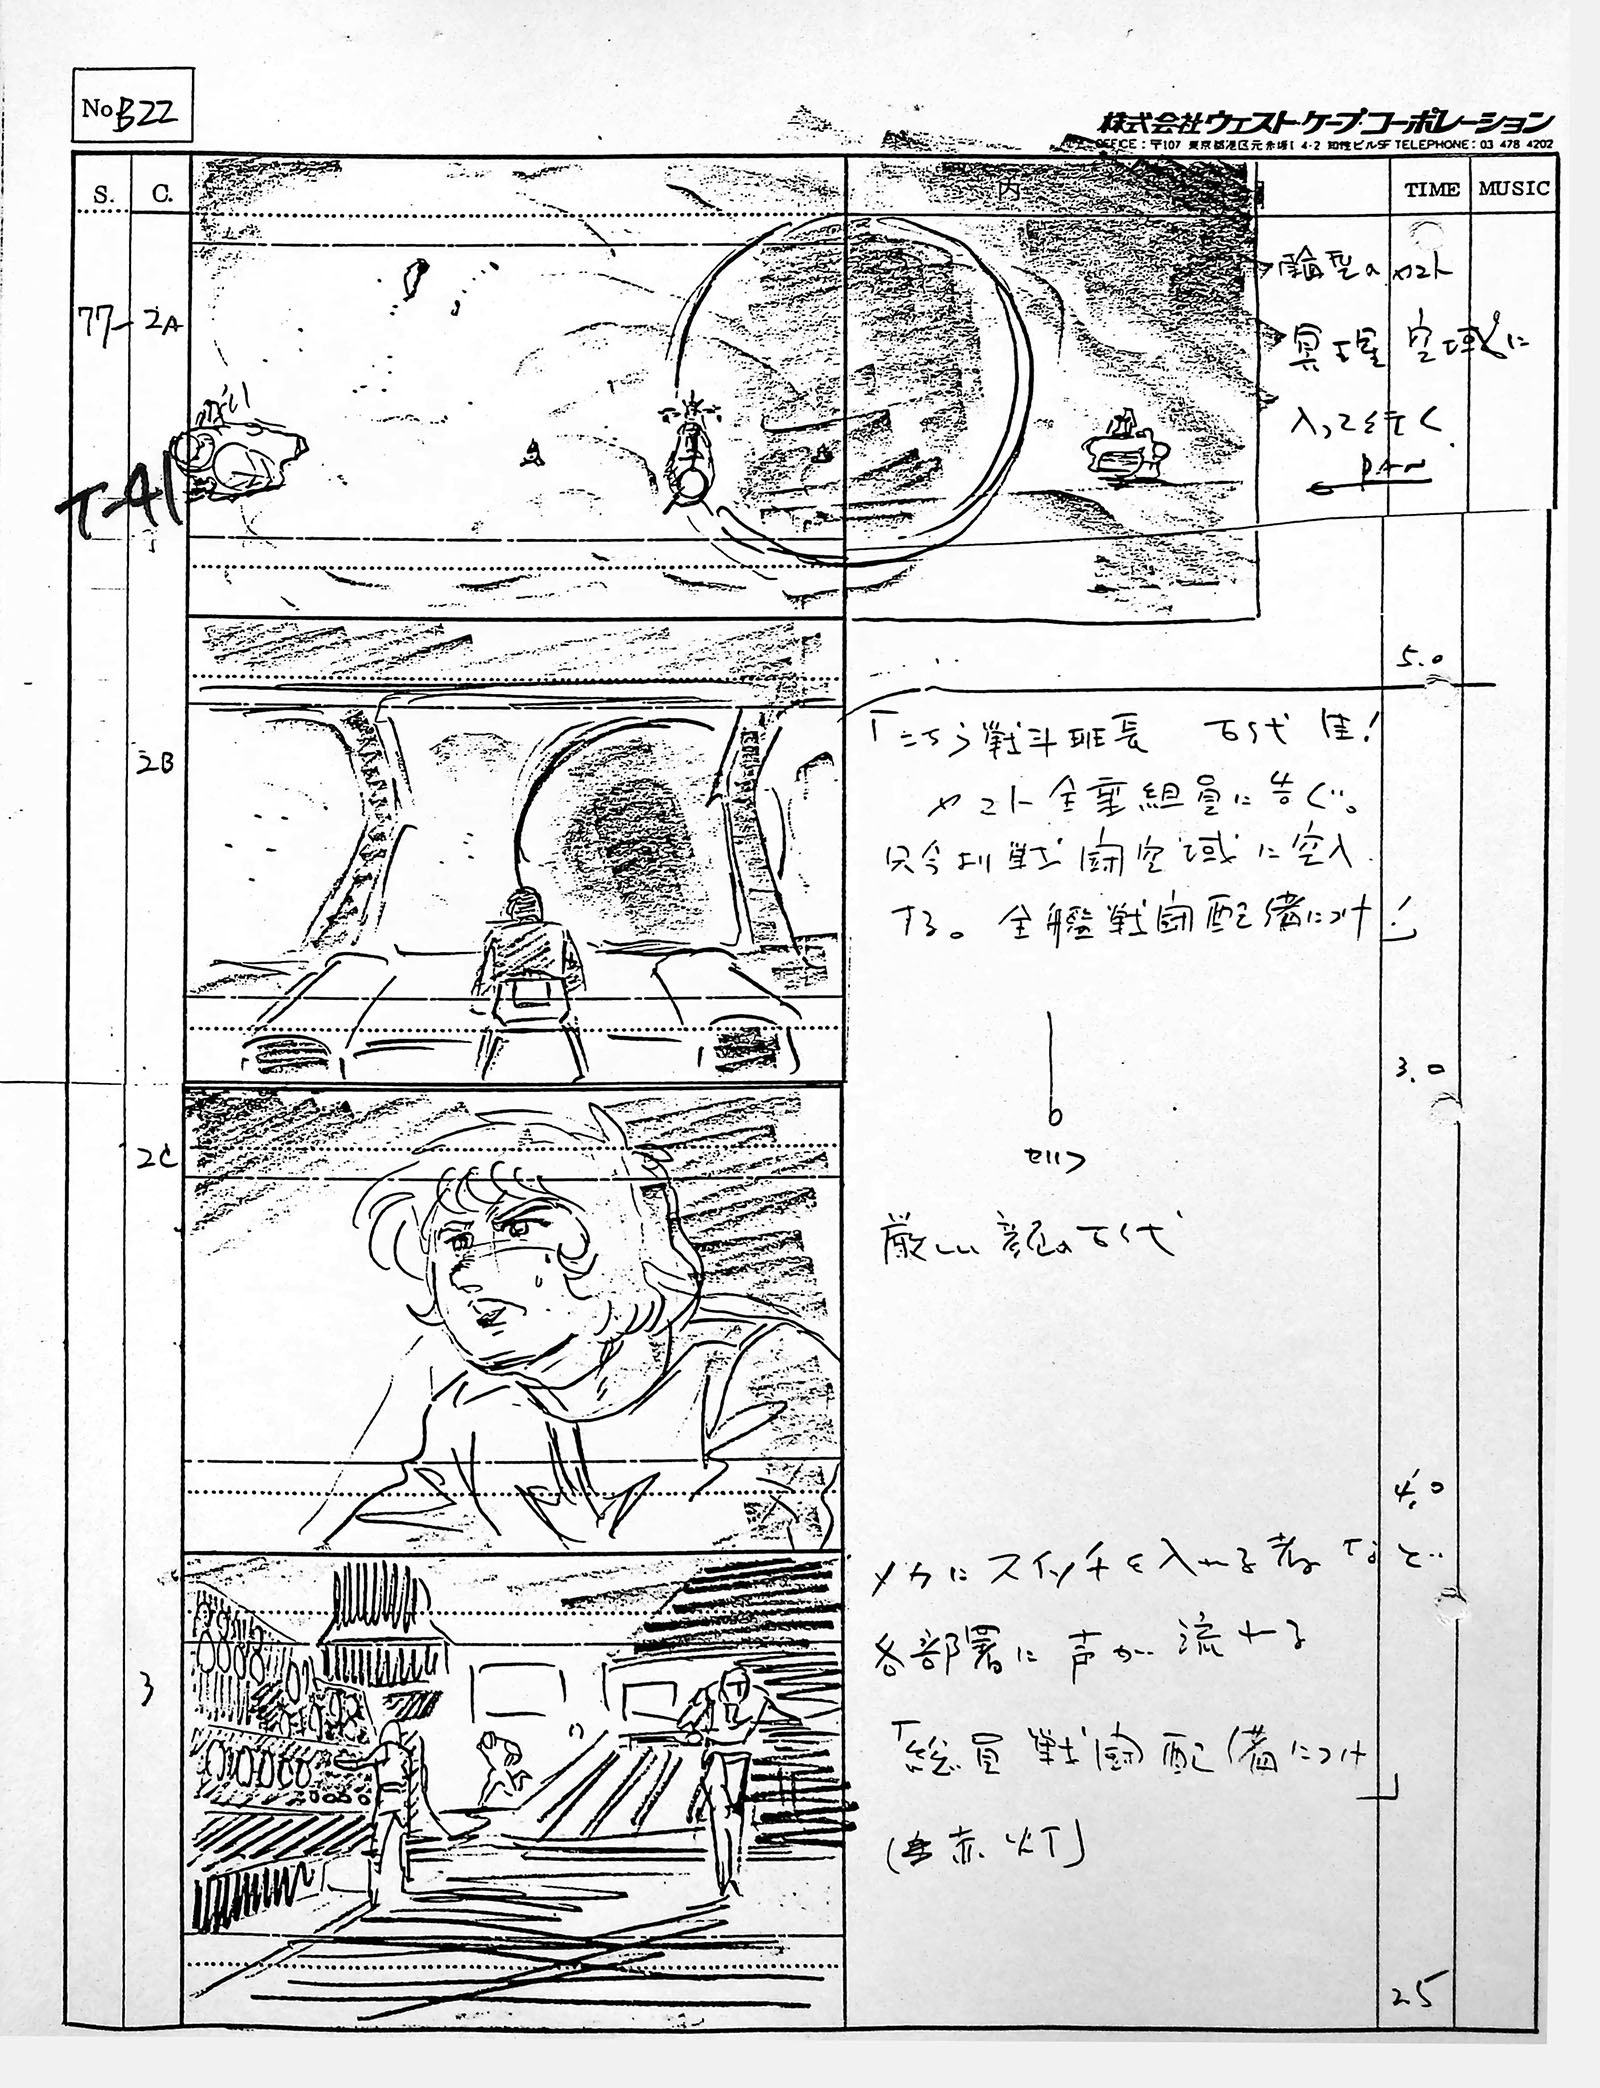 No B22
株式会社ウェスト・ケープ・コーポレーション
OFFICE：〒107 東京都港区元赤坂1 4-2 知性ビル5F TELEPHONE：03 478 4202
S. C. 内 TIME MUSIC
77- 2A
T-41
輪型の ヤマト
冥王星 空域に
入って行く
PAN
5.0
2B
「こちら戦斗班長 古代 進！
ヤマト全乗組員に告ぐ。
只今より戦闘空域に突入
する。全艦戦闘配備につけ！」
3.0
セリフ
2C
厳しい顔の古代
4.0
3
メカにスイッチを入れる者 など
各部署に声が流れる
「総員戦闘配備につけ」
赤灯)
25